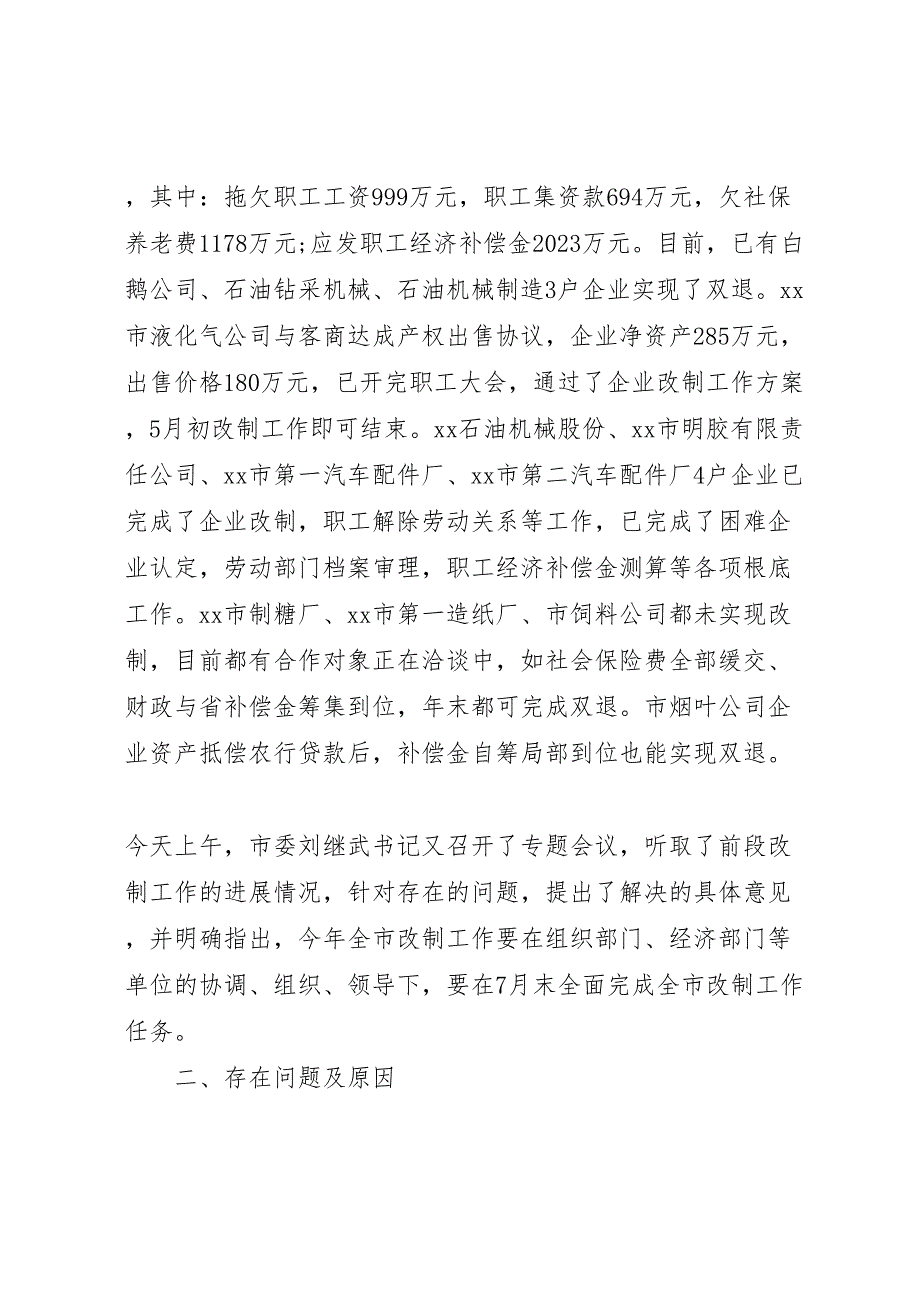 ，其中：拖欠职工工资999万元，职工集资款694万元，欠社保
养老费1178万元;应发职工经济补偿金2023万元。目前，已有白
鹅公司、石油钻采机械、石油机械制造3户企业实现了双退。xx
市液化气公司与客商达成产权出售协议，企业净资产285万元，
出售价格180万元，已开完职工大会，通过了企业改制工作方案
，5月初改制工作即可结束。xx石油机械股份、xx市明胶有限责
任公司、xx市第一汽车配件厂、xx市第二汽车配件厂4户企业已
完成了企业改制，职工解除劳动关系等工作，已完成了困难企
业认定，劳动部门档案审理，职工经济补偿金测算等各项根底
工作。xx市制糖厂、xx市第一造纸厂、市饲料公司都未实现改
制，目前都有合作对象正在洽谈中，如社会保险费全部缓交、
财政与省补偿金筹集到位，年末都可完成双退。市烟叶公司企
业资产抵偿农行贷款后，补偿金自筹局部到位也能实现双退。
今天上午，市委刘继武书记又召开了专题会议，听取了前段改
制工作的进展情况，针对存在的问题，提出了解决的具体意见
，并明确指出，今年全市改制工作要在组织部门、经济部门等
单位的协调、组织、领导下，要在7月末全面完成全市改制工作
任务。
二、存在问题及原因